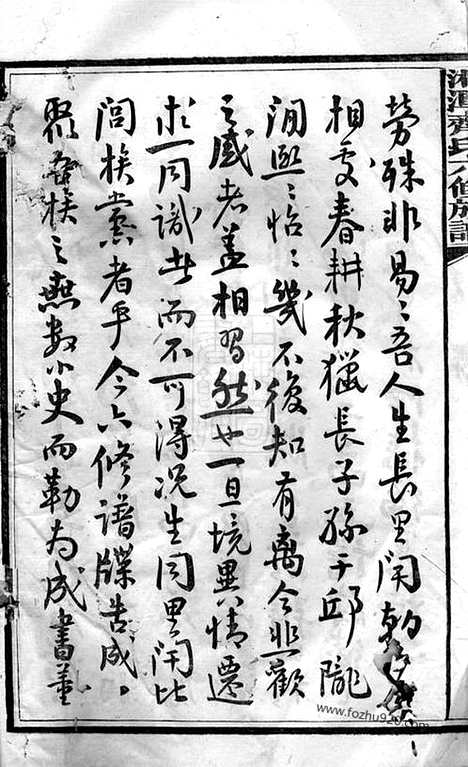 湘潭齊氏六修族譜
勞殊非易易吾人生長里閈朝夕
相處春耕秋獵長子孫于邱隴
間熙〻怡〻幾不復知有离合悲歡
之感者盖相習然也一旦境異情遷
求一同識者而不可得况生同里閈比
閭族黨者乎今六修譜牒告成。
聚吾族之無數小史而勒为成書蓋
www.fozhu920.com